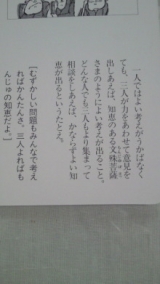 一人ではよい考えがうかばなく
ても、三人が力をあわせて意見を
出しあえば、知恵のある文殊菩薩
さまのようによい考えが出ること。
どんな人でも三人もより集まって
相談をしあえば、かならずよい知
恵が出るというたとえ。
［むずかしい問題もみんなで考え
ればかんたんさ。三人よればも
んじゅの知恵だよ。］